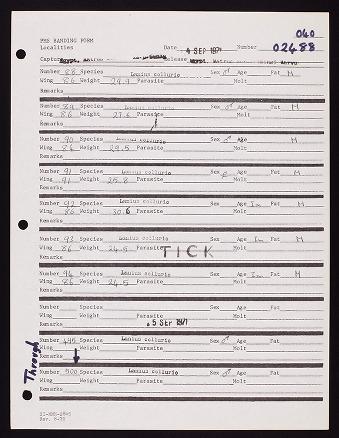 040
PMS BANDING FORM
Localities Date 4 SEP 1971 Number 02488
Capture Egypt. Release Egypt.
Number 88 Species Lanius collurio Sex ♂ Age Fat M
Wing 86 Weight Parasite Molt
Remarks
Number 89 Species Lanius collurio Sex ♂ Age Fat M
Wing 86 Weight 27.6 Parasite Molt
Remarks
Number 90 Species Lanius collurio Sex ♂ Age Fat M
Wing 86 Weight 29.5 Parasite Molt
Remarks
Number 91 Species Lanius collurio Sex Age Fat
Wing 91 Weight 25.8 Parasite Molt
Remarks
Number 92 Species Lanius collurio Sex Age Im Fat M
Wing 86 Weight 30.6 Parasite Molt
Remarks
Number 93 Species Lanius collurio Sex Age Im Fat M
Wing 86 Weight 24.5 Parasite Molt
TICK
Remarks
Number 94 Species Lanius collurio Sex Age Im Fat M
Wing 86 Weight 24.5 Parasite Molt
Remarks
Number Species Sex Age Fat
Wing Weight Parasite Molt
Remarks 5 SEP 1971
Number 495 Species Lanius collurio Sex ♂ Age Fat
Wing Weight Parasite Molt
Remarks
Through
Number 500 Species Lanius collurio Sex ♂ Age Fat
Wing Weight Parasite Molt
Remarks